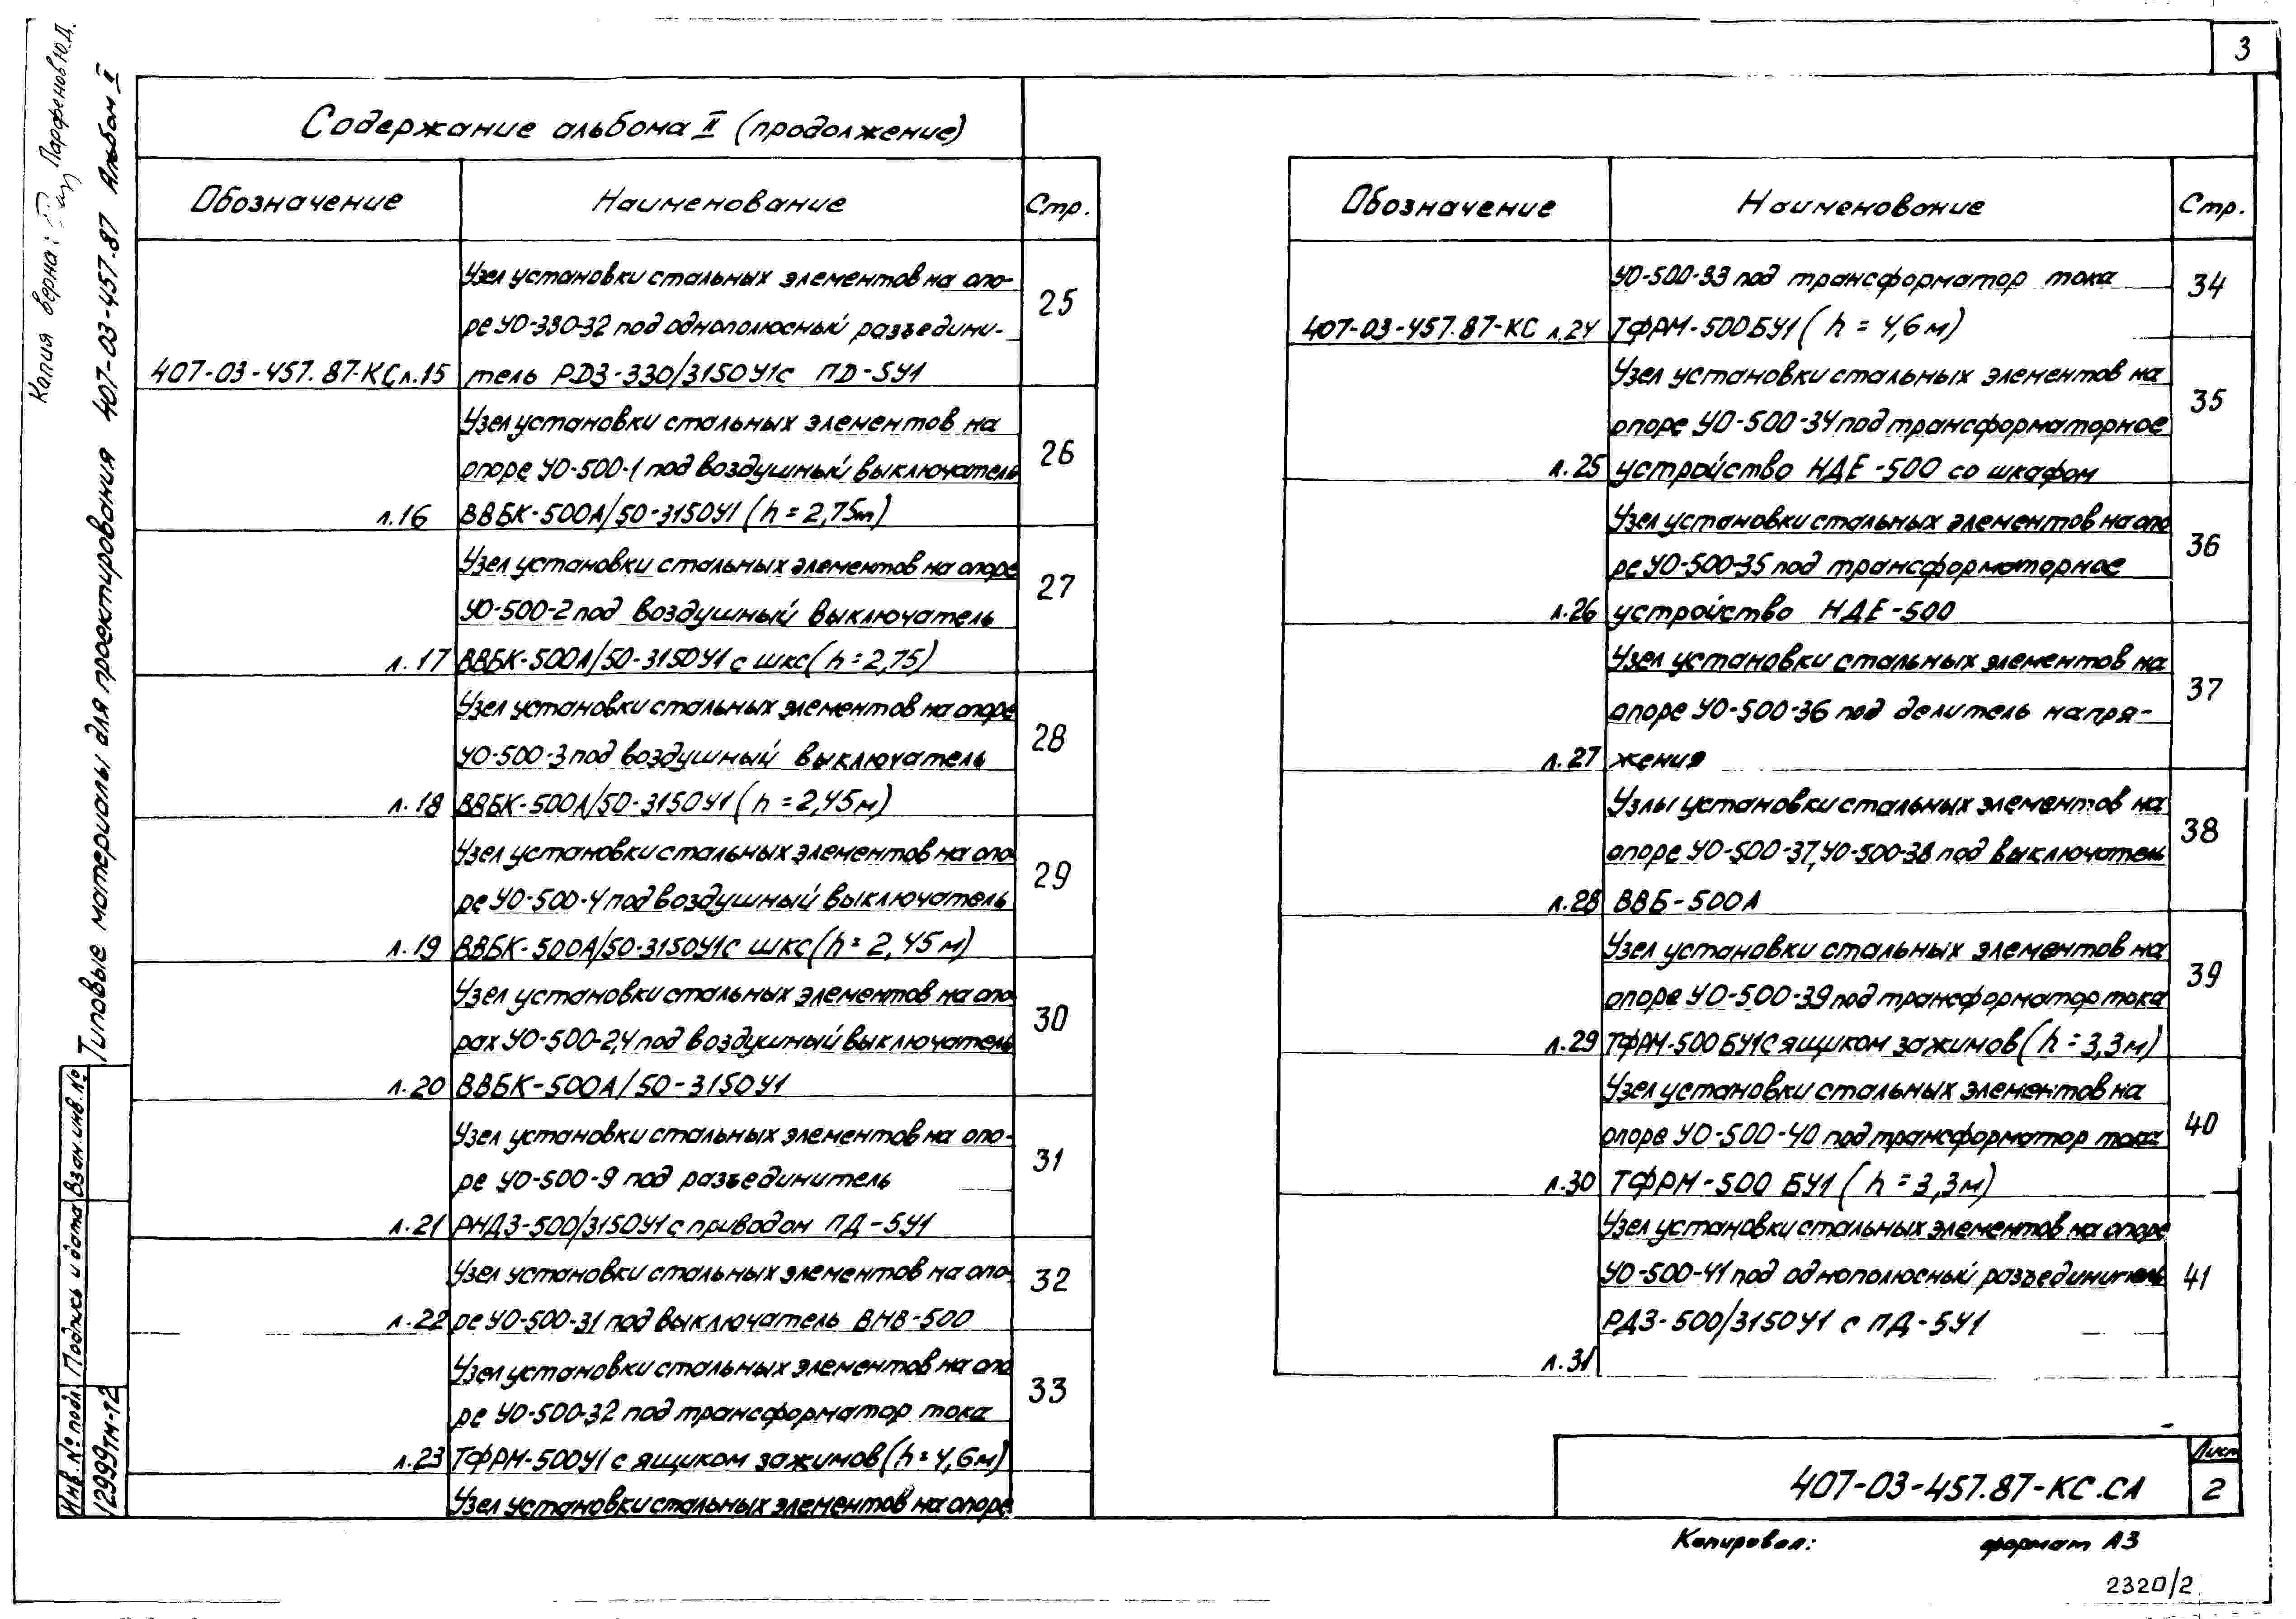 3
Копия верна: Парфенов Ю.Д.
Типовые материалы для проектирования 407-03-457.87 Альбом II
Содержание альбома II (продолжение)
Обозначение Наименование Стр.
Узел установки стальных элементов на опо-
25
ре УО-330-32 под однополюсный разъедини-
407-03-457.87-КС л.15 тель РДЗ-330/3150У1 с ПД-5У1
Узел установки стальных элементов на
26
опоре УО-500-1 под воздушный выключатель
л.16 ВВБК-500А/50-3150У1 (h=2,75м)
Узел установки стальных элементов на опоре
27
УО-500-2 под воздушный выключатель
л.17 ВВБК-500А/50-3150У1 с шкс (h=2,75)
Узел установки стальных элементов на опоре
28
УО-500-3 под воздушный выключатель
л.18 ВВБК-500А/50-3150У1 (h=2,45м)
Узел установки стальных элементов на опо
29
ре УО-500-4 под воздушный выключатель
л.19 ВВБК-500А/50-3150У1 с шкс (h=2,45м)
Узел установки стальных элементов на опо
30
рах УО-500-2,4 под воздушный выключатель
л.20 ВВБК-500А/50-3150У1
Узел установки стальных элементов на опо-
31
ре УО-500-9 под разъединитель
л.21 РНДЗ-500/3150У1 с приводом ПД-5У1
Узел установки стальных элементов на опо-
32
л.22 ре УО-500-31 под выключатель ВНВ-500
Узел установки стальных элементов на опо
33
ре УО-500-32 под трансформатор тока
л.23 ТФРМ-500У1 с ящиком зажимов (h=4,6м)
Узел установки стальных элементов на опоре
Обозначение Наименование Стр.
УО-500-33 под трансформатор тока 34
407-03-457.87-КС л.24 ТФРМ-500БУ1 (h=4,6м)
Узел установки стальных элементов на
35
опоре УО-500-34 под трансформаторное
л.25 устройство НДЕ-500 со шкафом
Узел установки стальных элементов на опо
36
ре УО-500-35 под трансформаторное
л.26 устройство НДЕ-500
Узел установки стальных элементов на
37
опоре УО-500-36 под делитель напря-
л.27 жения
Узлы установки стальных элементов на
38
опоре УО-500-37, УО-500-38 под выключатель
л.28 ВВБ-500А
Узел установки стальных элементов на
39
опоре УО-500-39 под трансформатор тока
л.29 ТФРМ-500БУ1 с ящиком зажимов (h=3,3м)
Узел установки стальных элементов на
40
опоре УО-500-40 под трансформатор тока
л.30 ТФРМ-500 БУ1 (h=3,3м)
Узел установки стальных элементов на опоре
УО-500-41 под однополюсный разъединитель 41
РДЗ-500/3150У1 с ПД-5У1
л.31
Инв.№ подл. Подпись и дата Взам.инв.№
12999тм-т2
407-03-457.87-КС.СА
Лист
2
Копировал: формат А3
2320/2